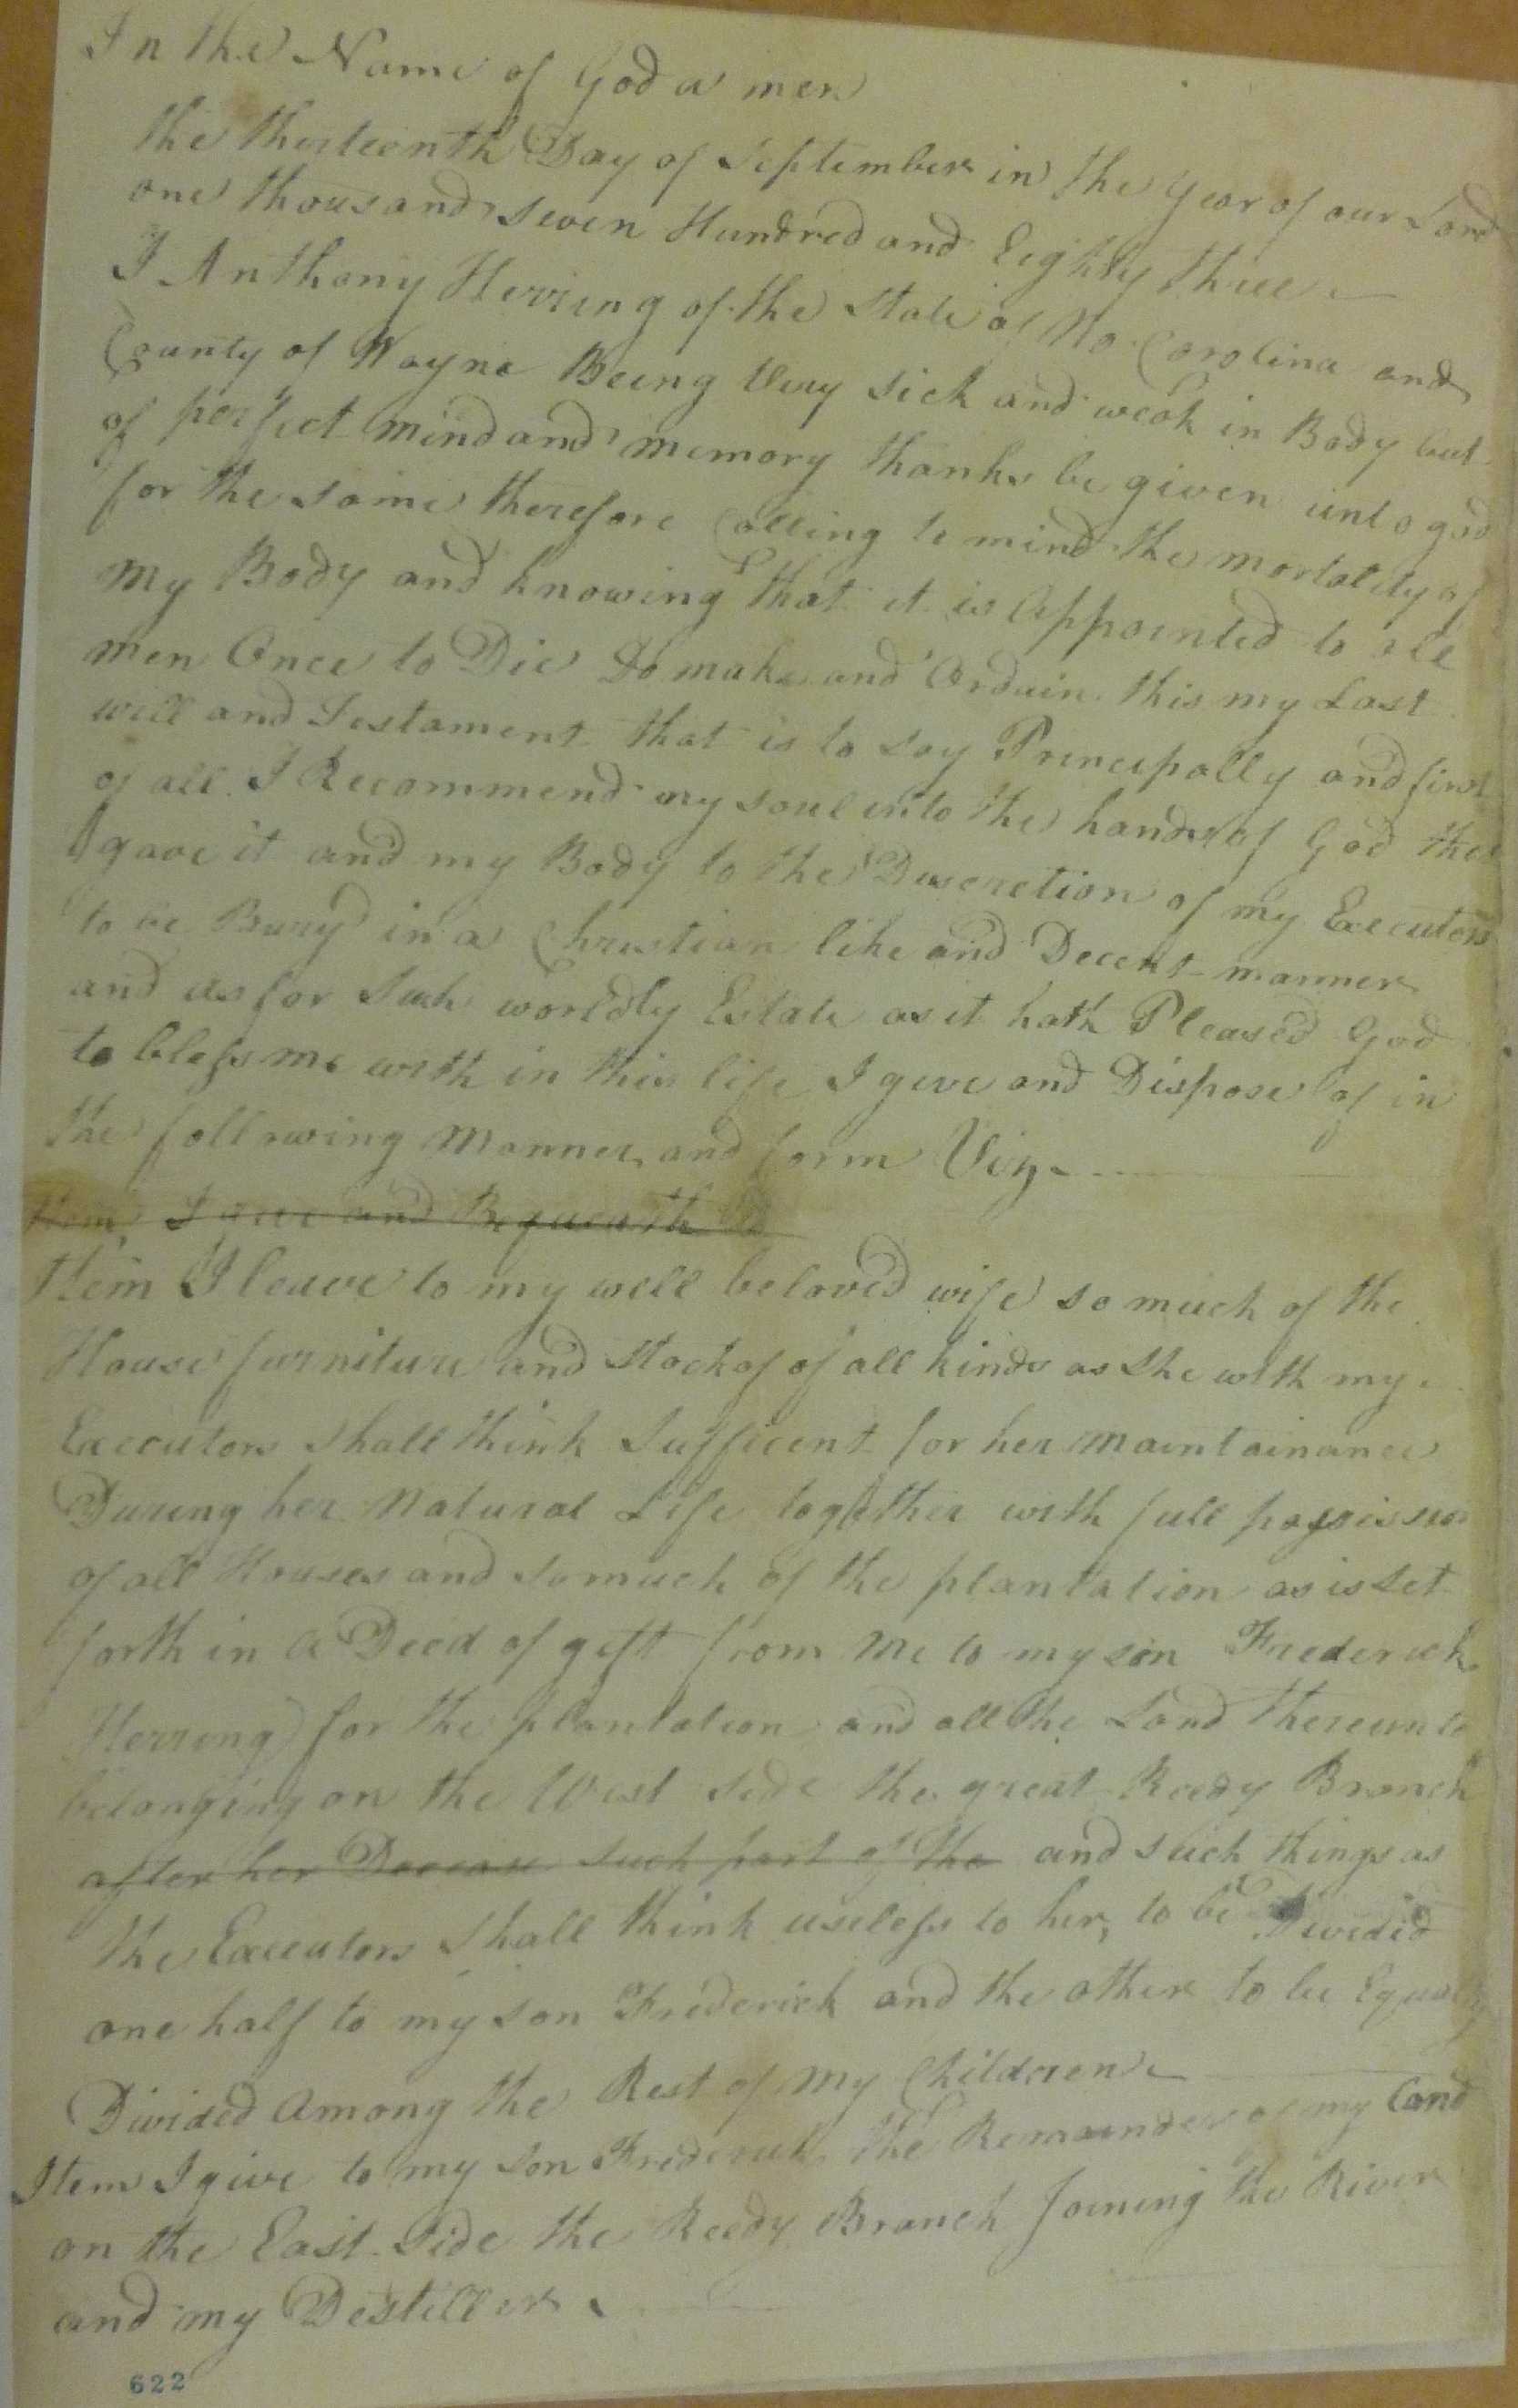 In the Name of God a men
the thirteenth Day of September in the year of our Lord
one thousand seven Hundred and Eighty three
I Anthony Herring of the State of No. Carolina and
County of Wayne Being Very sick and weak in Body but
of perfect mind and memory thanks be given unto god
for the same therefore Calling to mind the mortality of
my Body and knowing that it is appointed to all
men Once to Die Do make and Ordain this my Last
will and Testament that is to say Principally and first
of all I Recommend my soul into the hands of God that
gave it and my Body to the Discretion of my Executors
to be Bury'd in a Christian like and Decent manner
and as for such worldly Estate as it hath Pleased God
to bless me with in this life I give and Dispose of in
the following Manner and form Viz
Item I give and Bequeath to
Item I leave to my well beloved wife so much of the
House furniture and Stock of of all kinds as She with my
Executors shall think Sufficent for her maintainance
During her Natural Life together with full
of all Houses and so much of the plantation as is Set
forth in a Deed of gift from Me to my son Frederick
Herring for the plantation and all the Land thereunto
belonging on the West side the great Reedy Branch
after her Decease such part of the and such things as
the Executors shall think useless to her, to be Divided
one half to my son Frederick and the other to be Equally
Divided among the Rest of my Children
Item I give to my son Frederick the Remainder of my Land
on the East Side the Reedy Branch Joining the River
and my Destiller
622